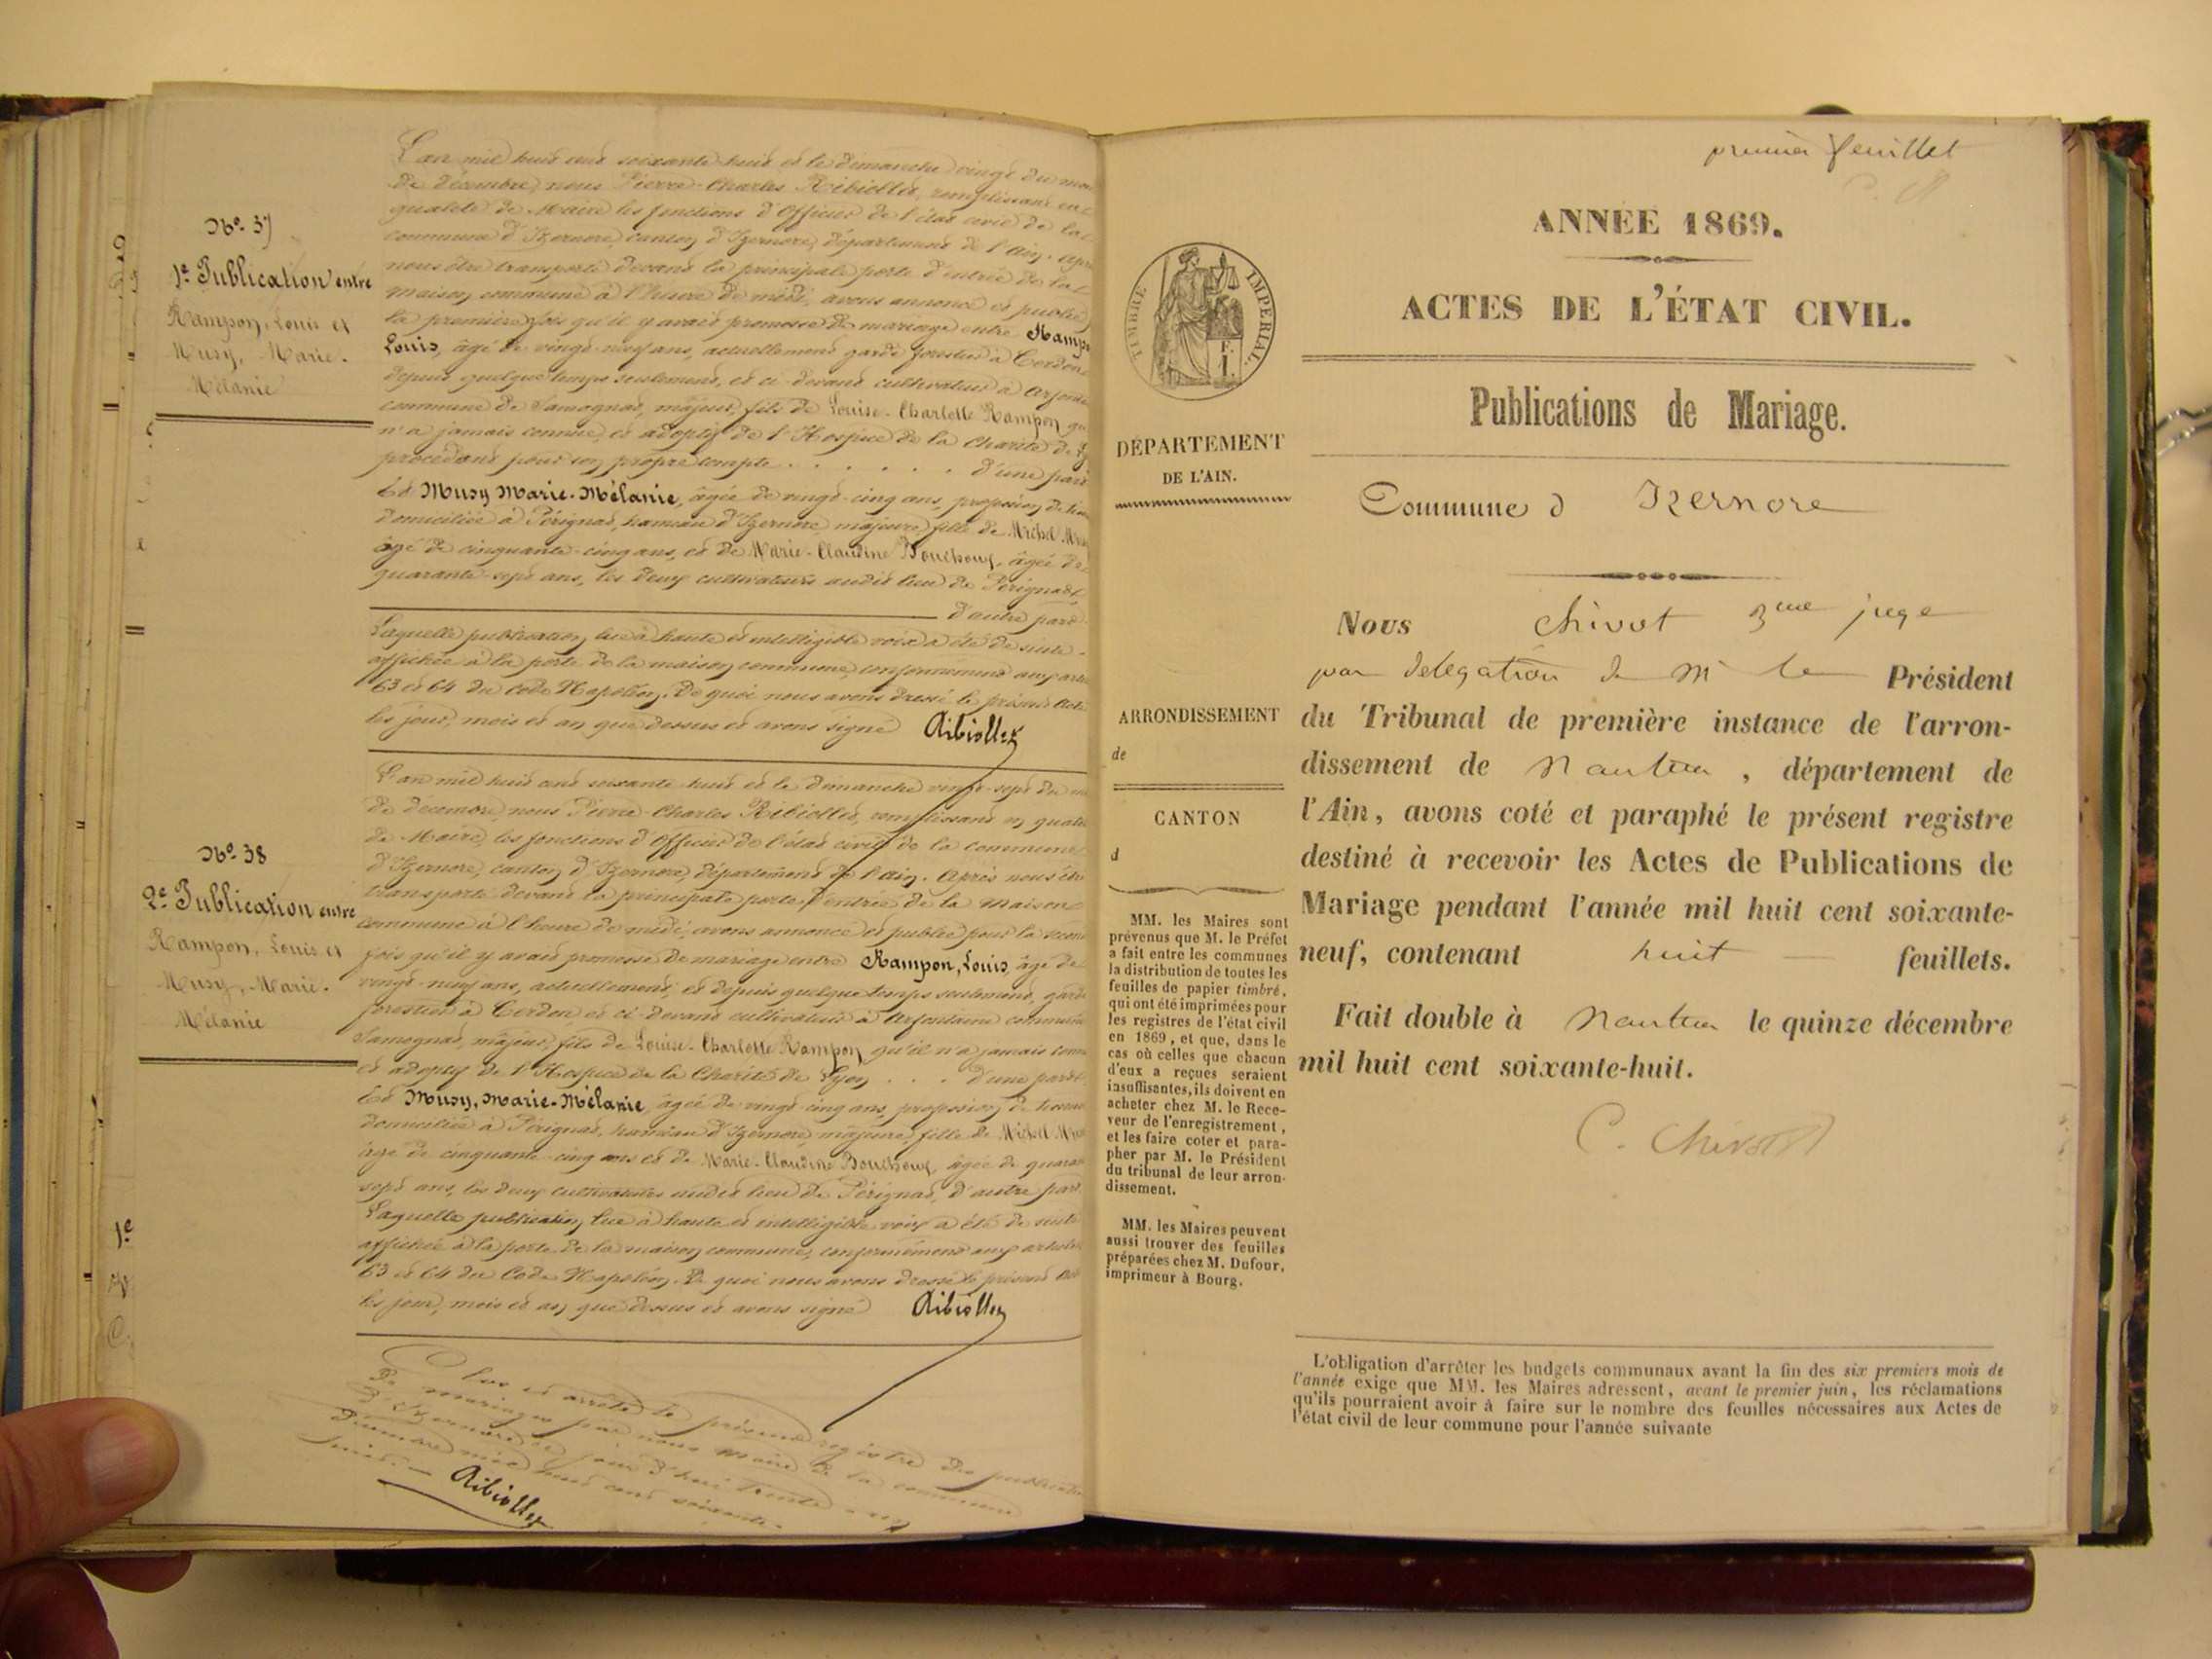 No. 37
1e Publication entre
Rampon, Louis et
Musy, Marie-
Mélanie
L'an mil huit cent soixante huit et le dimanche vingt du mois
de décembre, nous Pierre-Charles Ribiollet, remplissant en
qualité de Maire les fonctions d'Officier de l'état civil de la
commune d'Izernore, canton d'Izernore, département de l'Ain. Après
nous être transporté devant la principale porte d'entrée de la
maison commune à l'heure de midi, avons annoncé et publié
la première fois qu'il y avait promesse de mariage entre Rampon
Louis, âgé de vingt-neuf ans, actuellement garde forestier à Cerdon
depuis quelque temps seulement, et ci-devant cultivateur à Arfontaine
commune de Samognat, majeur, fils de Louise-Charlotte Rampon qu'il
n'a jamais connue, et adoptif de l'Hospice de la Charité de Lyon
procédant pour son propre compte . . . . . . d'une part
Et Musy Marie-Mélanie, âgée de vingt-cinq ans, profession de
domiciliée à Pérignat, hameau d'Izernore, majeure, fille de Michel Musy
âgé de cinquante-cinq ans, et de Marie-Claudine Bouchoux, âgée de
quarante-sept ans, les deux cultivateurs audit lieu de Pérignat,
d'autre part.
Laquelle publication, lue à haute et intelligible voix a été de suite
affichée à la porte de la maison commune, conformément aux articles
63 et 64 du Code Napoléon. De quoi nous avons dressé le présent acte
les jour, mois et an que dessus et avons signé Ribiollet
No. 38
2e Publication entre
Rampon, Louis et
Musy, Marie-
Mélanie
L'an mil huit cent soixante huit et le dimanche vingt-sept du mois
de décembre, nous Pierre-Charles Ribiollet, remplissant en qualité
de Maire, les fonctions d'Officier de l'état civil de la commune
d'Izernore, canton d'Izernore, département de l'Ain. Après nous être
transporté devant la principale porte d'entrée de la maison
commune à l'heure de midi, avons annoncé et publié pour la seconde
fois qu'il y avait promesse de mariage entre Rampon, Louis, âgé de
vingt-neuf ans, actuellement, et depuis quelque temps seulement, garde
forestier à Cerdon et ci-devant cultivateur à Arfontaine commune
Samognat, majeur, fils de Louise-Charlotte Rampon qu'il n'a jamais connue
et adoptif de l'Hospice de la Charité de Lyon . . . d'une part
Et Musy, Marie-Mélanie, âgée de vingt-cinq ans, profession de
domiciliée à Pérignat, hameau d'Izernore, majeure, fille de Michel Musy
âgé de cinquante-cinq ans et de Marie-Claudine Bouchoux, âgée de quarante
sept ans, les deux cultivateurs audit lieu de Pérignat, d'autre part.
Laquelle publication, lue à haute et intelligible voix a été de suite
affichée à la porte de la maison commune, conformément aux articles
63 et 64 du Code Napoléon. De quoi nous avons dressé le présent acte
les jour, mois et an que dessus et avons signé Ribiollet
Clos et arrêté le présent registre des publications
de mariages par nous Maire de la commune
d'Izernore ce jour d'hui trente et un
décembre mil huit cent soixante-
huit. Ribiollet
premier feuillet
ANNÉE 1869.
ACTES DE L'ÉTAT CIVIL.
TIMBRE IMPÉRIAL.
F.
1.
DÉPARTEMENT
DE L'AIN.
ARRONDISSEMENT
de
CANTON
d
MM. les Maires sont
prévenus que M. le Préfet
a fait entre les communes
la distribution de toutes les
feuilles de papier timbré,
qui ont été imprimées pour
les registres de l'état civil
en 1869, et que, dans le
cas où celles que chacun
d'eux a reçues seraient
insuffisantes, ils doivent en
acheter chez M. le Rece-
veur de l'enregistrement,
et les faire coter et para-
pher par M. le Président
du tribunal de leur arron-
dissement.
MM. les Maires peuvent
aussi trouver des feuilles
préparées chez M. Dufour,
imprimeur à Bourg.
Publications de Mariage.
Commune d Izernore
Nous Chivot 3me juge
par délégation de Mr le Président
du Tribunal de première instance de l'arron-
dissement de Nantua, département de
l'Ain, avons coté et paraphé le présent registre
destiné à recevoir les Actes de Publications de
Mariage pendant l'année mil huit cent soixante-
neuf, contenant huit feuillets.
Fait double à Nantua le quinze décembre
mil huit cent soixante-huit.
C. Chivot
L'obligation d'arrêter les budgets communaux avant la fin des six premiers mois de
l'année exige que MM. les Maires adressent, avant le premier juin, les réclamations
qu'ils pourraient avoir à faire sur le nombre des feuilles nécessaires aux Actes de
l'état civil de leur commune pour l'année suivante